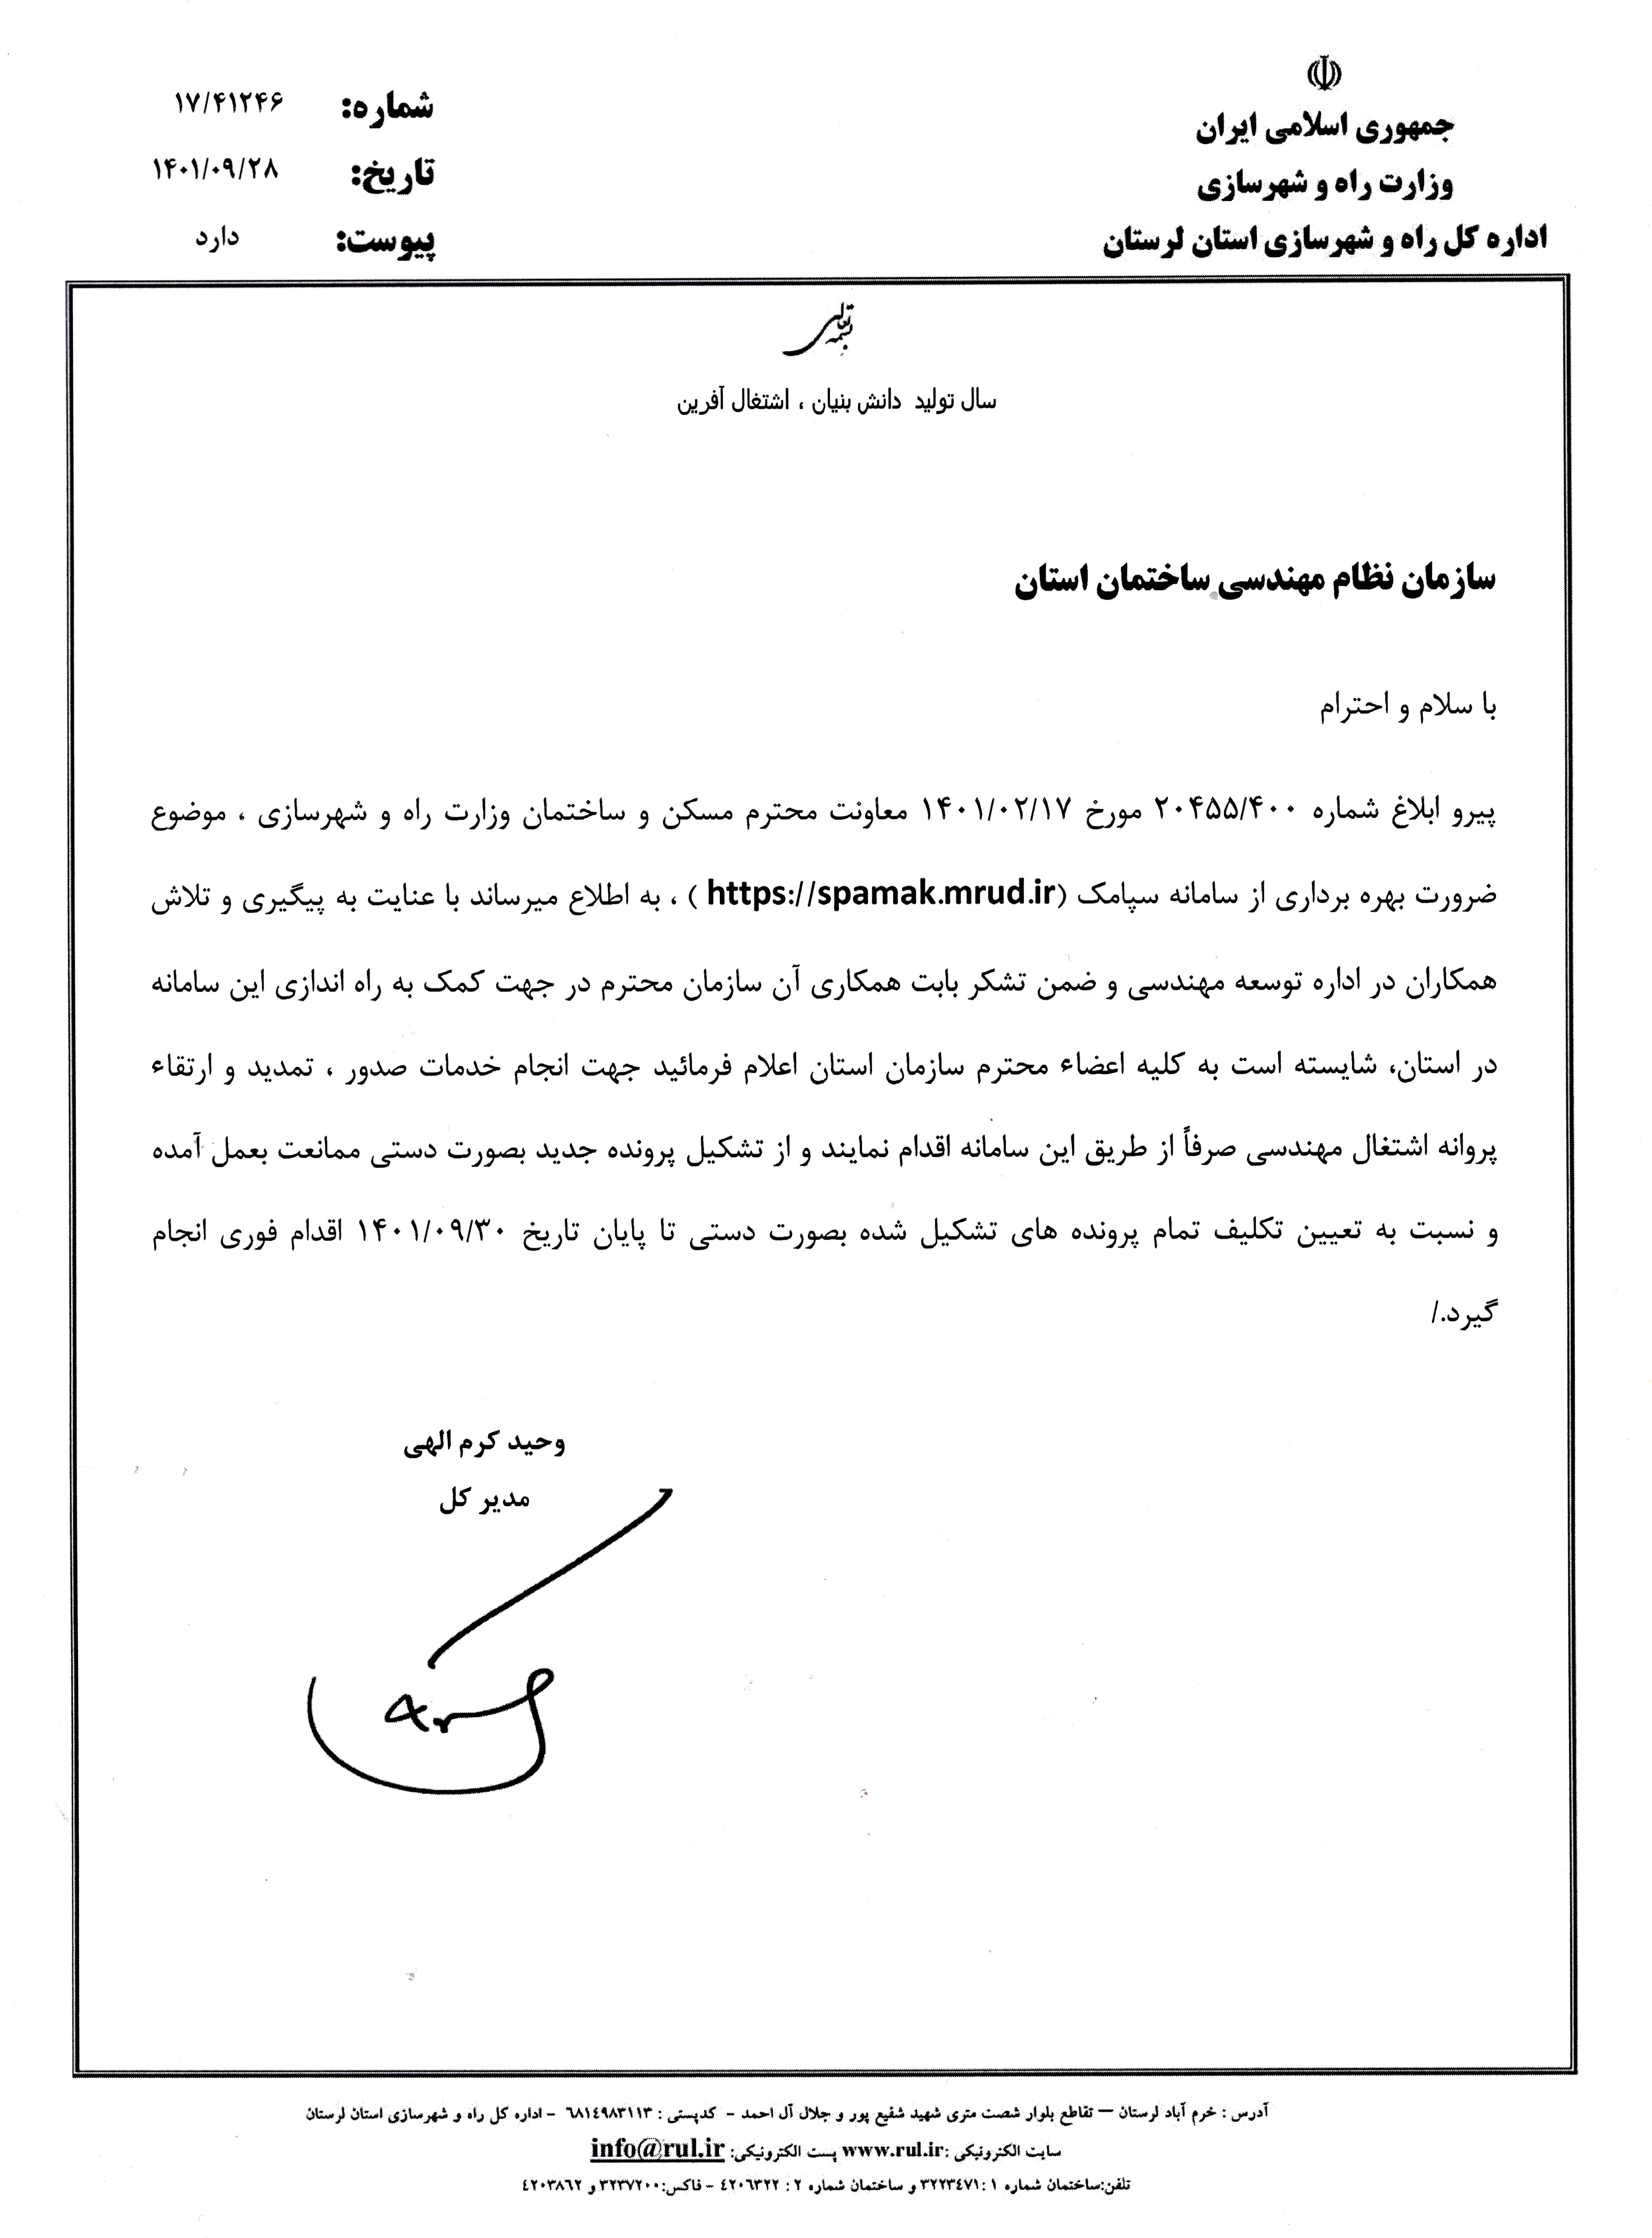 جمهوری اسلامی ایران
وزارت راه و شهرسازی
اداره کل راه و شهرسازی استان لرستان
شماره: ۱۷/۴۱۲۴۶
تاریخ: ۱۴۰۱/۰۹/۲۸
پیوست: دارد
بسمه تعالی
سال تولید دانش بنیان ، اشتغال آفرین
سازمان نظام مهندسی ساختمان استان
با سلام و احترام
پیرو ابلاغ شماره ۲۰۴۵۵/۴۰۰ مورخ ۱۴۰۱/۰۲/۱۷ معاونت محترم مسکن و ساختمان وزارت راه و شهرسازی ، موضوع
ضرورت بهره برداری از سامانه سپامک (https://spamak.mrud.ir ) ، به اطلاع میرساند با عنایت به پیگیری و تلاش
همکاران در اداره توسعه مهندسی و ضمن تشکر بابت همکاری آن سازمان محترم در جهت کمک به راه اندازی این سامانه
در استان، شایسته است به کلیه اعضاء محترم سازمان استان اعلام فرمائید جهت انجام خدمات صدور ، تمدید و ارتقاء
پروانه اشتغال مهندسی صرفاً از طریق این سامانه اقدام نمایند و از تشکیل پرونده جدید بصورت دستی ممانعت بعمل آمده
و نسبت به تعیین تکلیف تمام پرونده های تشکیل شده بصورت دستی تا پایان تاریخ ۱۴۰۱/۰۹/۳۰ اقدام فوری انجام
گیرد./
وحید کرم الهی
مدیر کل
آدرس : خرم آباد لرستان – تقاطع بلوار شصت متری شهید شفیع پور و جلال آل احمد - کدپستی : ٦٨١٤٩٨٣١١٣ - اداره کل راه و شهرسازی استان لرستان
سایت الکترونیکی :www.rul.ir پست الکترونیکی: info@rul.ir
تلفن:ساختمان شماره ١ :٣٢٢٣٤٧١ و ساختمان شماره ٢ : ٤٢٠٦٣٢٢ - فاکس:٣٢٣٧٢٠٠ و ٤٢٠٣٨٦٢